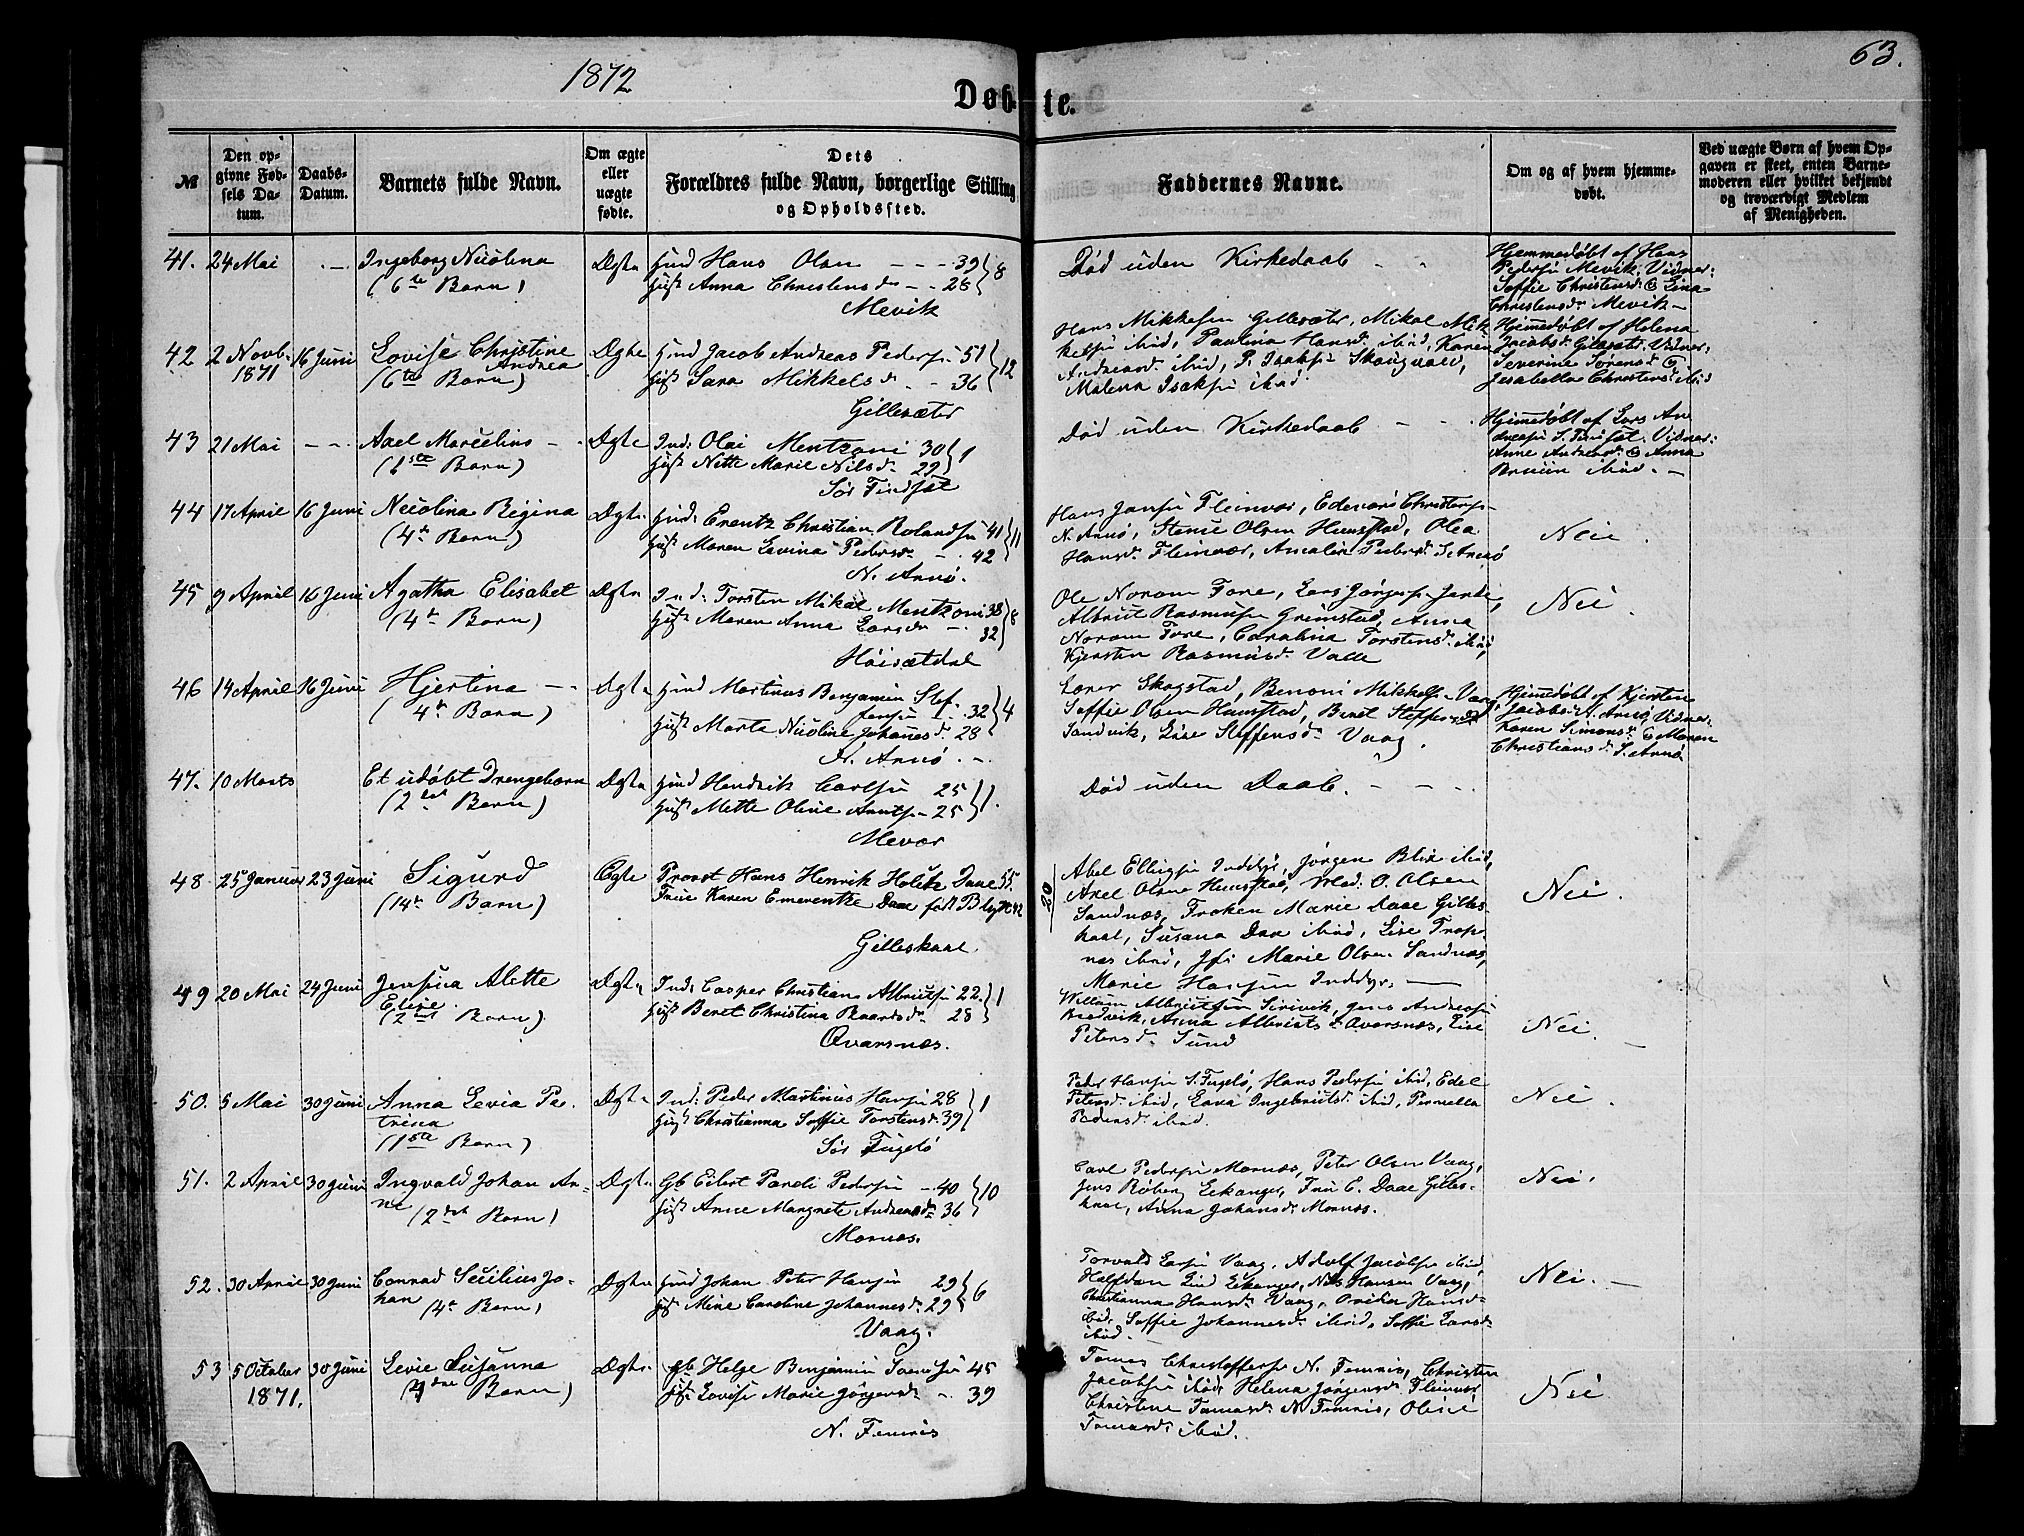 1872
63.
Døbte.
№
Den opgivne Fødsels Datum.
Daabs-Datum.
Barnets fulde Navn.
Om ægte eller uægte fødte.
Dets Forældres fulde Navn, borgerlige Stilling og Opholdssted.
Faddernes Navne.
Om og af hvem hjemmedøbt.
Ved uægte Børn af hvem Opgaven er skeet, enten Barnemoderen eller hvilket bekjendt og troværdigt Medlem af Menigheden.
41. 24 Mai
Ingeborg Nicolina
(6te Barn)
Ægte
Hans Olsen 39
Anna Christensdr 28 } 8
Mevik
Død uden Kirkedaab
Hjemmedøbt af Hans
Pedersen Mevik. Vidner:
Soffie Christensdr & Lina
Christensdr Mevik
42 2 Novb. 16 Juni
1871
Lovise Christine
Andrea
(6te Barn)
Ægte
Jacob Andreas Peders. 51
Sara Mikkelsdr 36 } 12
Gillesæter
Hans Mikkelsen Gillesæter, Mikal Mik
kelsen ibid, Paulina Hansdr ibid, Karen
Andreasdr ibid, P. Isaks. Skaugvold,
Malena Isaks. ibid.
Hjemmedøbt af Helena
Jacobsdr. Vidner:
Severine Sørensdr &
Jesabella Christensdr ibid
43 21 Mai
Axel Marcelius
(1ste Barn)
Ægte
Ind: Olai Mentzoni 30
Nette Marie Nilsdr 29 } 1
Sør Findset
Død uden Kirkedaab
Hjemmedøbt af Lars An
dreas. S. Findset. Vidner:
Anne Andreasdr & Anna
ibid.
44 17 April 16 Juni
Nicolina Regina
(4de Barn)
Ægte
Erentz Christian Rolands. 41
Maren Levina Pedersdr 42 } 11
N. Arnø.
Hans Jans. Fleinvær, Edevard Christophs.
N. Arnø, Stene Olsen Hunstad, Olea
Hansdr Fleinvær, Amalie Pedersdr S. Arnø
Nei.
45 9 April 16 Juni
Agatha Elisabet
(4de Barn)
Ægte
Ind: Torsten Mikal Mentzoni 38
Maren Anna Larsdr 32 } 8
Høisætdal
Ole Norum Fore,
Albrict Rasmus. Grimstad, Anna
Norum Fore, Carolina Torstensdr ibid,
Kjersten Rasmusdr Valle
Nei.
46 14 April 16 Juni
Hjertina
(4de Barn)
Ægte
Martinus Benjamin Stef
fens. 32
Marta Nicoline Johansdr 28 } 4
N. Arnø.
Skogstad, Benoni Mikkels. Vaag,
Soffie Olsen Hunstad, Beret Steffensdr
Sandvik, Lise Steffensdr Vaag.
Hjemmedøbt af Kjersten
Jacobs. N. Arnø, Vidner:
Karen Simonsdr & Maren
Christiansdr S. Arnø
47. 10 Marts
Et udøbt Drengebarn
(2det Barn)
Ægte
Hendrik Carls. 25
Mette Oline Arnts. 25 } 1.
Mevær
Død uden Daab.
48. 25 Januar 23 Juni
Sigurd
(14de Barn)
Ægte
Provst Hans Henrik Holtz Daae 55.
Frue Karen Emerentze Daae født Blyt 42
Gilleskaal
20
Abel Ellings. Inddyr, Jørgen Blix ibid,
Axel Olsen Hunstad, O. Olsen
Sandnæs, Frøken Marie Daae Gilles
kaal, Susana Daae ibid, Lise Trap
næs ibid, Marie Olsen Sandnæs,
Marie Hansen Inddyr.
Nei.
49 20 Mai 24 Juni
Jensina Alette
Elise.
(2det Barn)
Ægte
Ind: Casper Christian Albricts. 22.
Beret Christina Baardsdr 28 } 1
Qvarsnæs.
Willum Albrictsen Sirivik, Jens Andreas.
Bredvik, Anna Albrictsdr Qvarsnæs, Lise
Petersdr Sund
Nei.
50. 5 Mai 30 Juni
Anna Levia Pe-
trina
(1ste Barn)
Ægte
Ind: Peder Martinus Hans. 28
Christianna Soffie Torstensdr 39 } 1
Sør Fugelø
Peder Hansen S. Fugelø, Hans Peders. ibid, Edel
Petersdr ibid, Lava Ingebrictsdr ibid, Pernella
Pedersdr ibid.
Nei.
51. 2 April 30 Juni
Ingvald Johan Ar-
ne
(2det Barn)
Ægte
Gb Eilert Pareli Peders. 40
Anne Margrete Andreasdr 36 } 10
Mornæs.
Carl Peders. Mornæs, Peter Olsen Vaag,
Jens Røberg Eekanger, Fru E. Daae Gilles-
kaal, Anna Johansdr Mornæs.
Nei.
52. 30 April 30 Juni
Conrad Secilius Jo-
han
(4de Barn)
Ægte
Johan Peter Hans. 29
Mine Caroline Johannesdr 29 } 6
Vaag.
Torvald Lars. Vaag, Adolf Jacobs. ibid,
Halfdan Lind Eekanger, Nils Hansen Vaag,
Christianna Hansdr Vaag, Ovidia Hansdr
ibid, Soffie Johannesdr ibid, Soffie Larsdr
ibid.
Nei.
53 5 October 30 Juni
1871.
Levie Susanna
(4de Barn)
Ægte
Gb Helge Benjamin 45
Lovise Marie Jørgensdr 39
N. Femris
Tomas Christoffers. N. Femris, Christen
Jacobsen ibid, Helena Jørgensdr Fleinvær
Christine Tomasdr N. Femris, Oline
Tomasdr ibid.
Nei